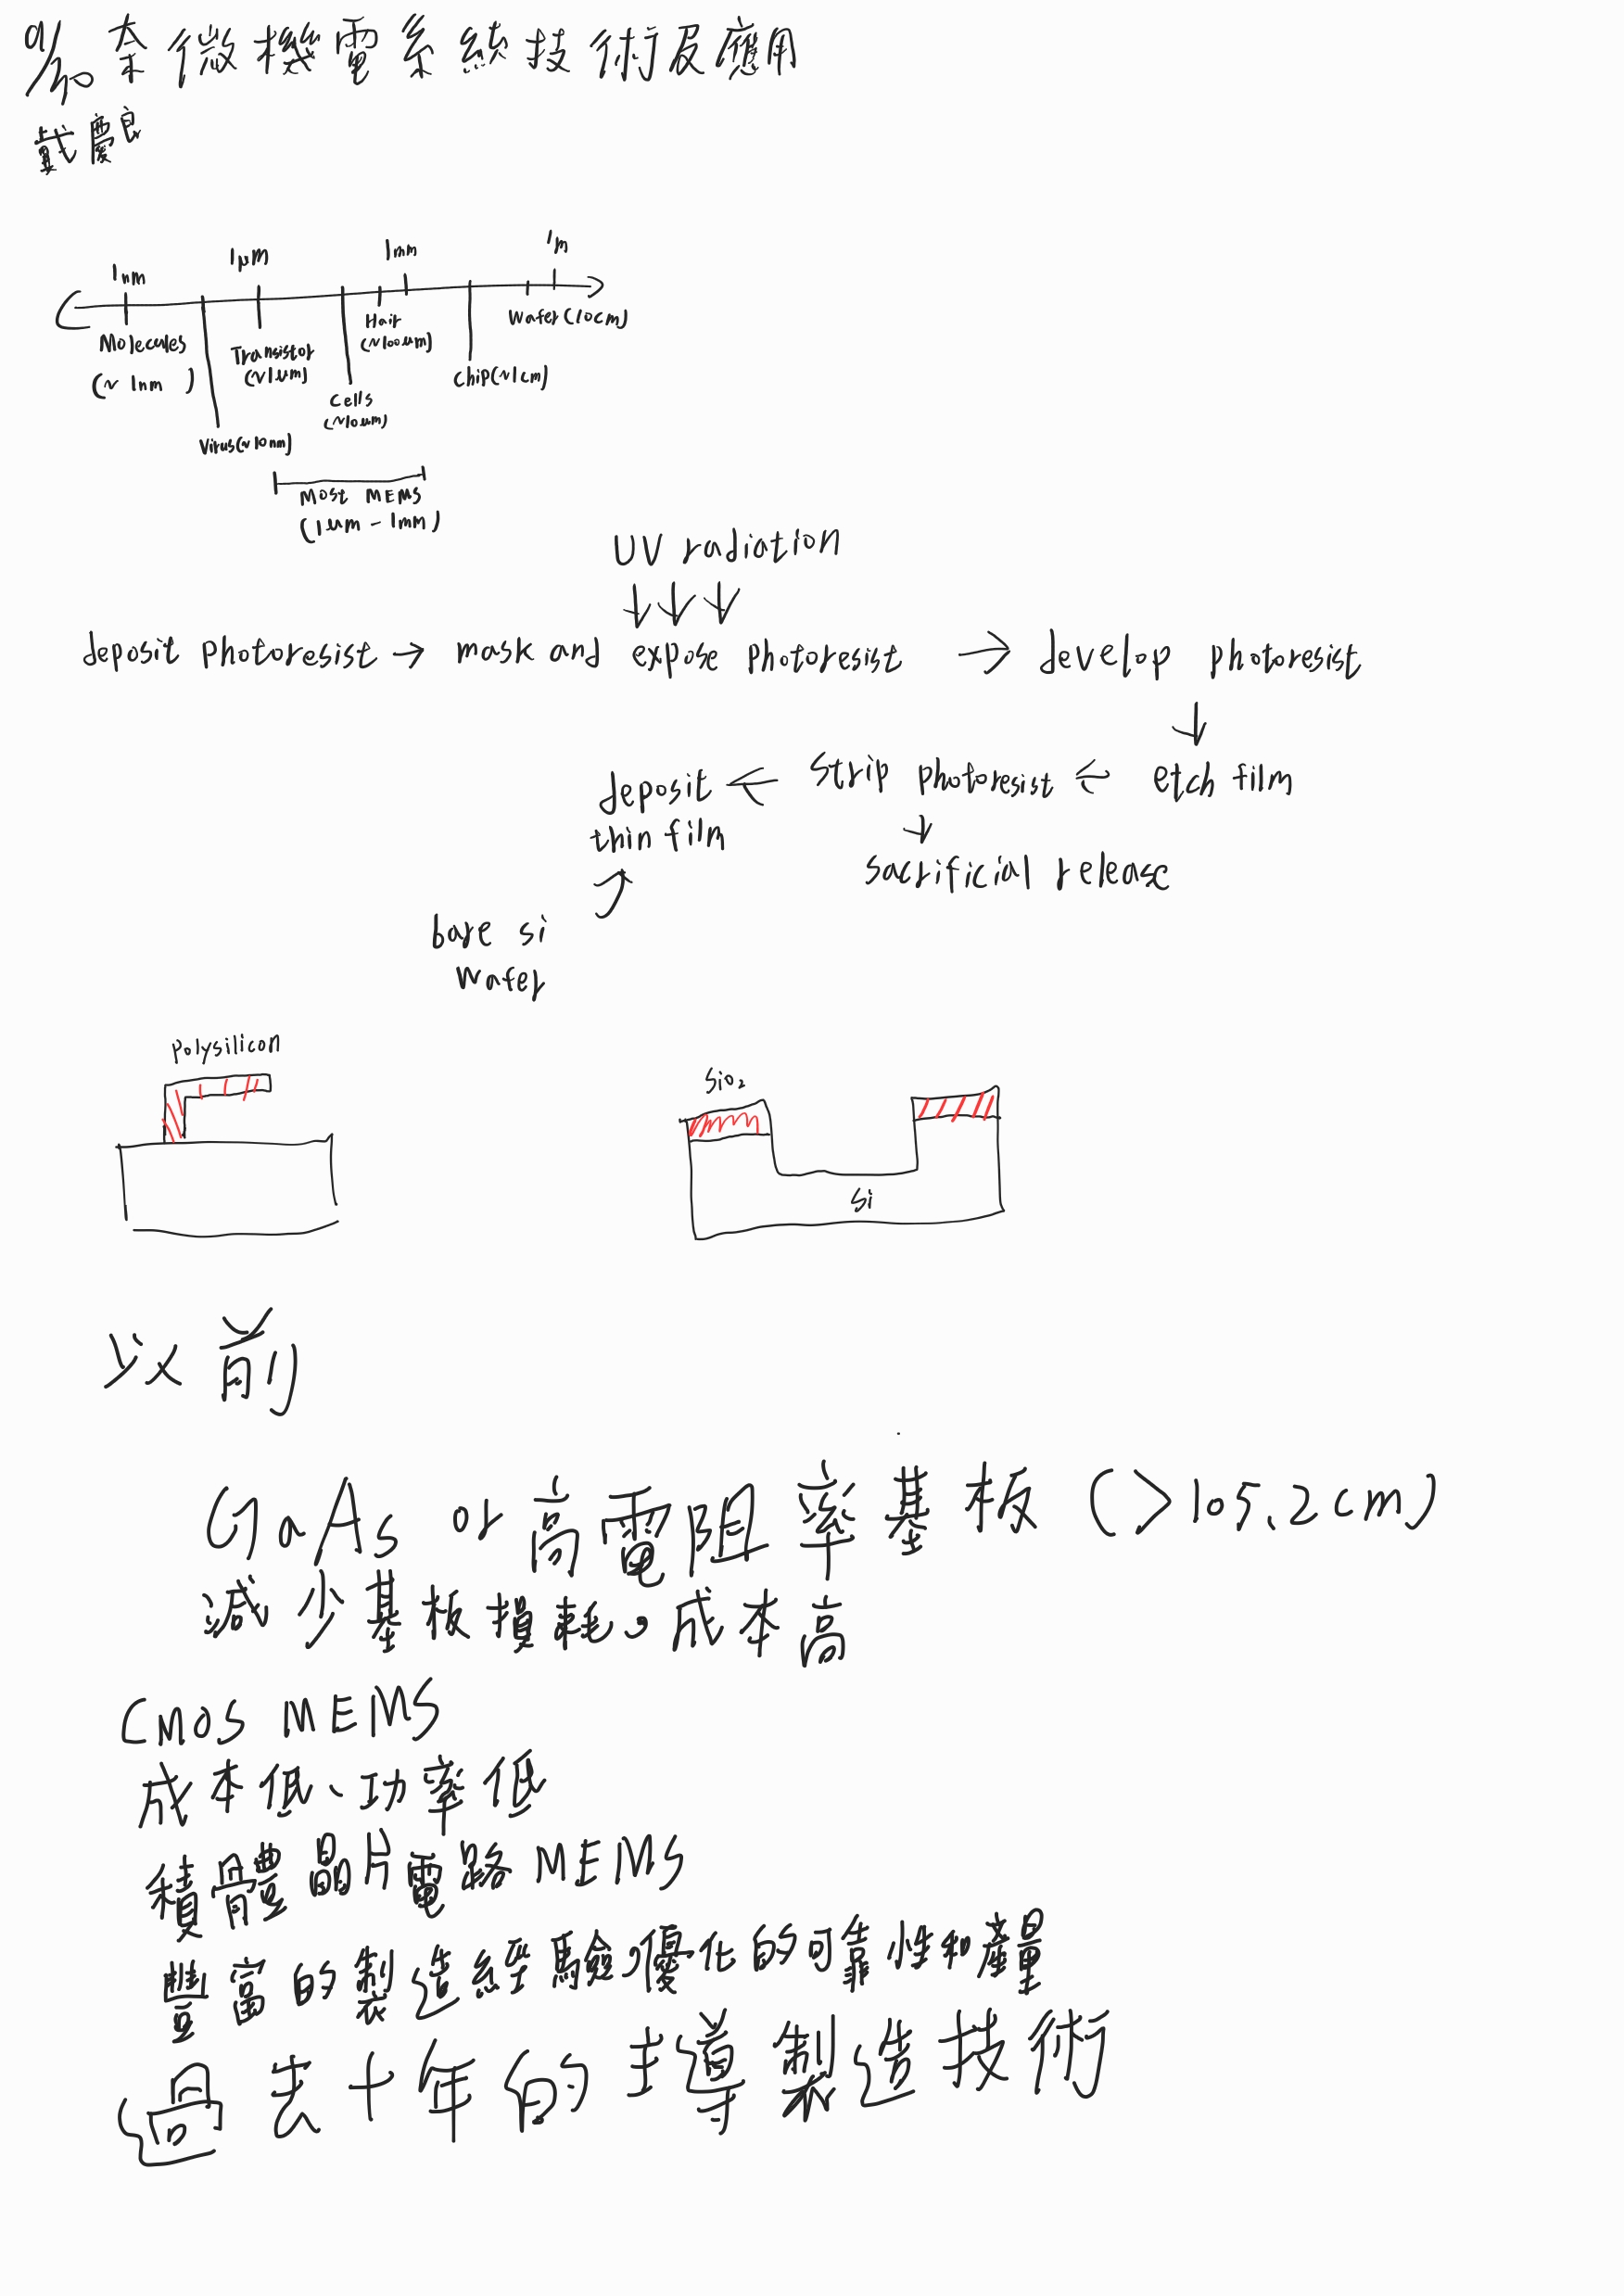 9/20 奈微機電系統技術及應用
戴慶良
1nm 1μm 1mm 1m
Molecules (~ 1nm )
Virus(~10nm)
Transistor (~1um)
cells (~10um)
Hair (~100um)
chip(~1cm)
wafer(10cm)
Most MEMS
(1um - 1mm)
UV radiation
↓↓↓
deposit photoresist → mask and expose photoresist → develop photoresist
↓
deposit thin film ← strip photoresist ← etch film
↓
sacrificial release
bare si
wafer
polysilicon
SiO₂
Si
以前
GaAs or 高電阻率基板 (>105.2cm)
減少基板損耗。成本高
CMOS MEMS
成本低、功率低
積體晶片電路MEMS
豐富的製造經驗,優化的可靠性和產量
過去十年的主導製造技術